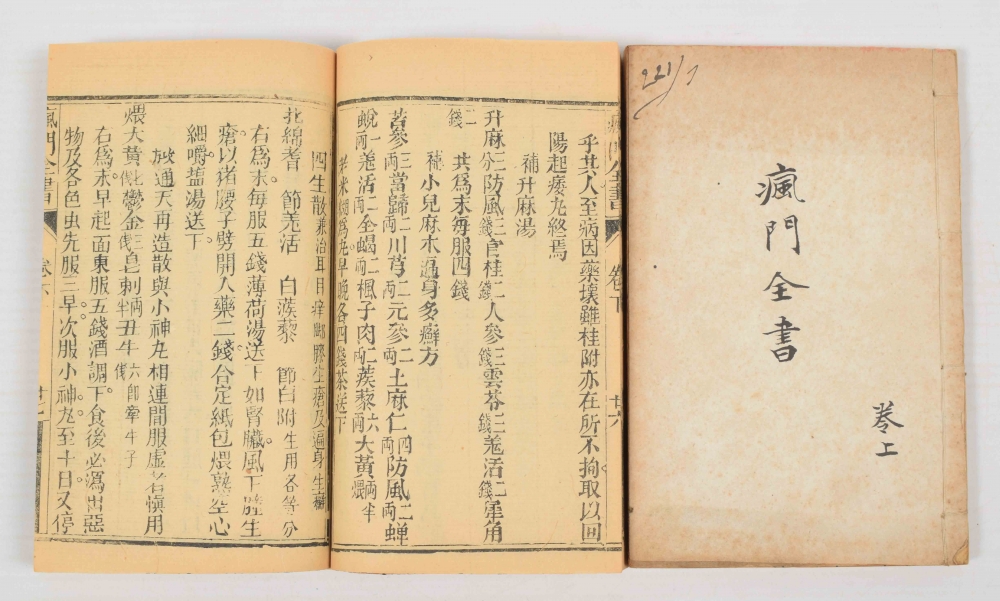 瘋門全書
卷上
221/7
瘋門全書 卷下 廿六
乎其人至病因藥壞雖桂附亦在所不拘取以回
陽起痿九終焉
補升麻湯
升麻三分防風三錢官桂二錢人參三錢雲苓三錢羗活二錢犀角
二錢 共為末每服四錢
補小兒麻木遍身多癬方
苦參三兩當歸三兩川芎二兩元參二兩土麻仁四兩防風二兩蟬
蛻一兩羗活二兩全蝎二兩楓子肉仁蒺藜六兩大黃煨兩半
米糊為丸早晚各四錢茶送下
四生散兼治耳目痒臁臍生瘡及遍身生癬
北綿耆 節羗活 白蒺藜 節白附生用各等分
右為末每服五錢薄荷湯送下如腎臟風下瘡生
瘡以猪腰子劈開入藥二錢合定紙包煨熟空心
細嚼塩湯送下
通天再造散與小神丸相連間服虛者慎用
煨大黃 鬱金三錢皂刺半兩丑牛 六即牽牛子
右為末早起面東服五錢酒調下食後必瀉出惡
物及各色虫先服三早次服小神丸至十日又停
瘋門全書